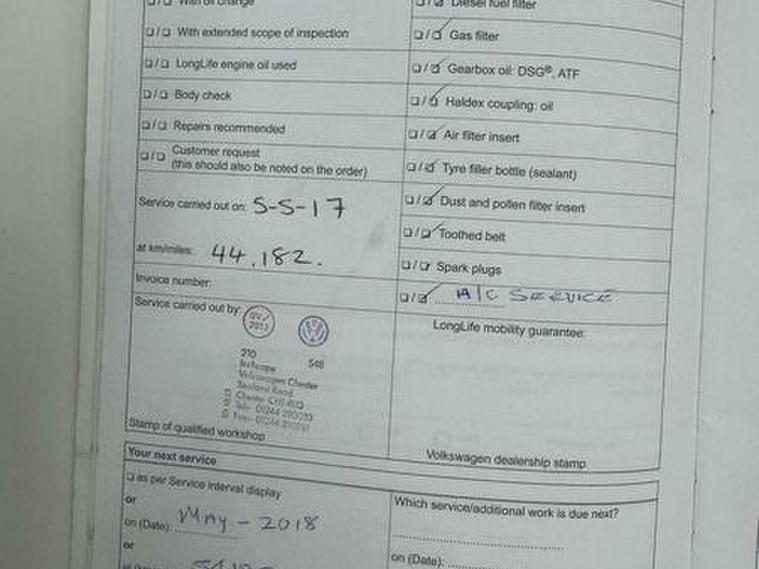 With oil change
❏/❏ With extended scope of inspection
❏/❏ LongLife engine oil used
❏/❏ Body check
❏/❏ Repairs recommended
❏/❏ Customer request
(this should also be noted on the order)
Service carried out on: 5-5-17
at km/miles: 44.182.
Invoice number:
Service carried out by:
210 548
Volkswagen Chester
Sealand Road
Stamp of qualified workshop
Diesel fuel filter
❏/❏ Gas filter
❏/❏ Gearbox oil: DSG®, ATF
❏/❏ Haldex coupling: oil
❏/❏ Air filter insert
❏/❏ Tyre filler bottle (sealant)
❏/❏ Dust and pollen filter insert
❏/❏ Toothed belt
❏/❏ Spark plugs
❏/❏ A/C SERVICE
LongLife mobility guarantee:
Volkswagen dealership stamp
Your next service
❏ as per Service interval display
or
on (Date): May - 2018
or
Which service/additional work is due next?
on (Date):